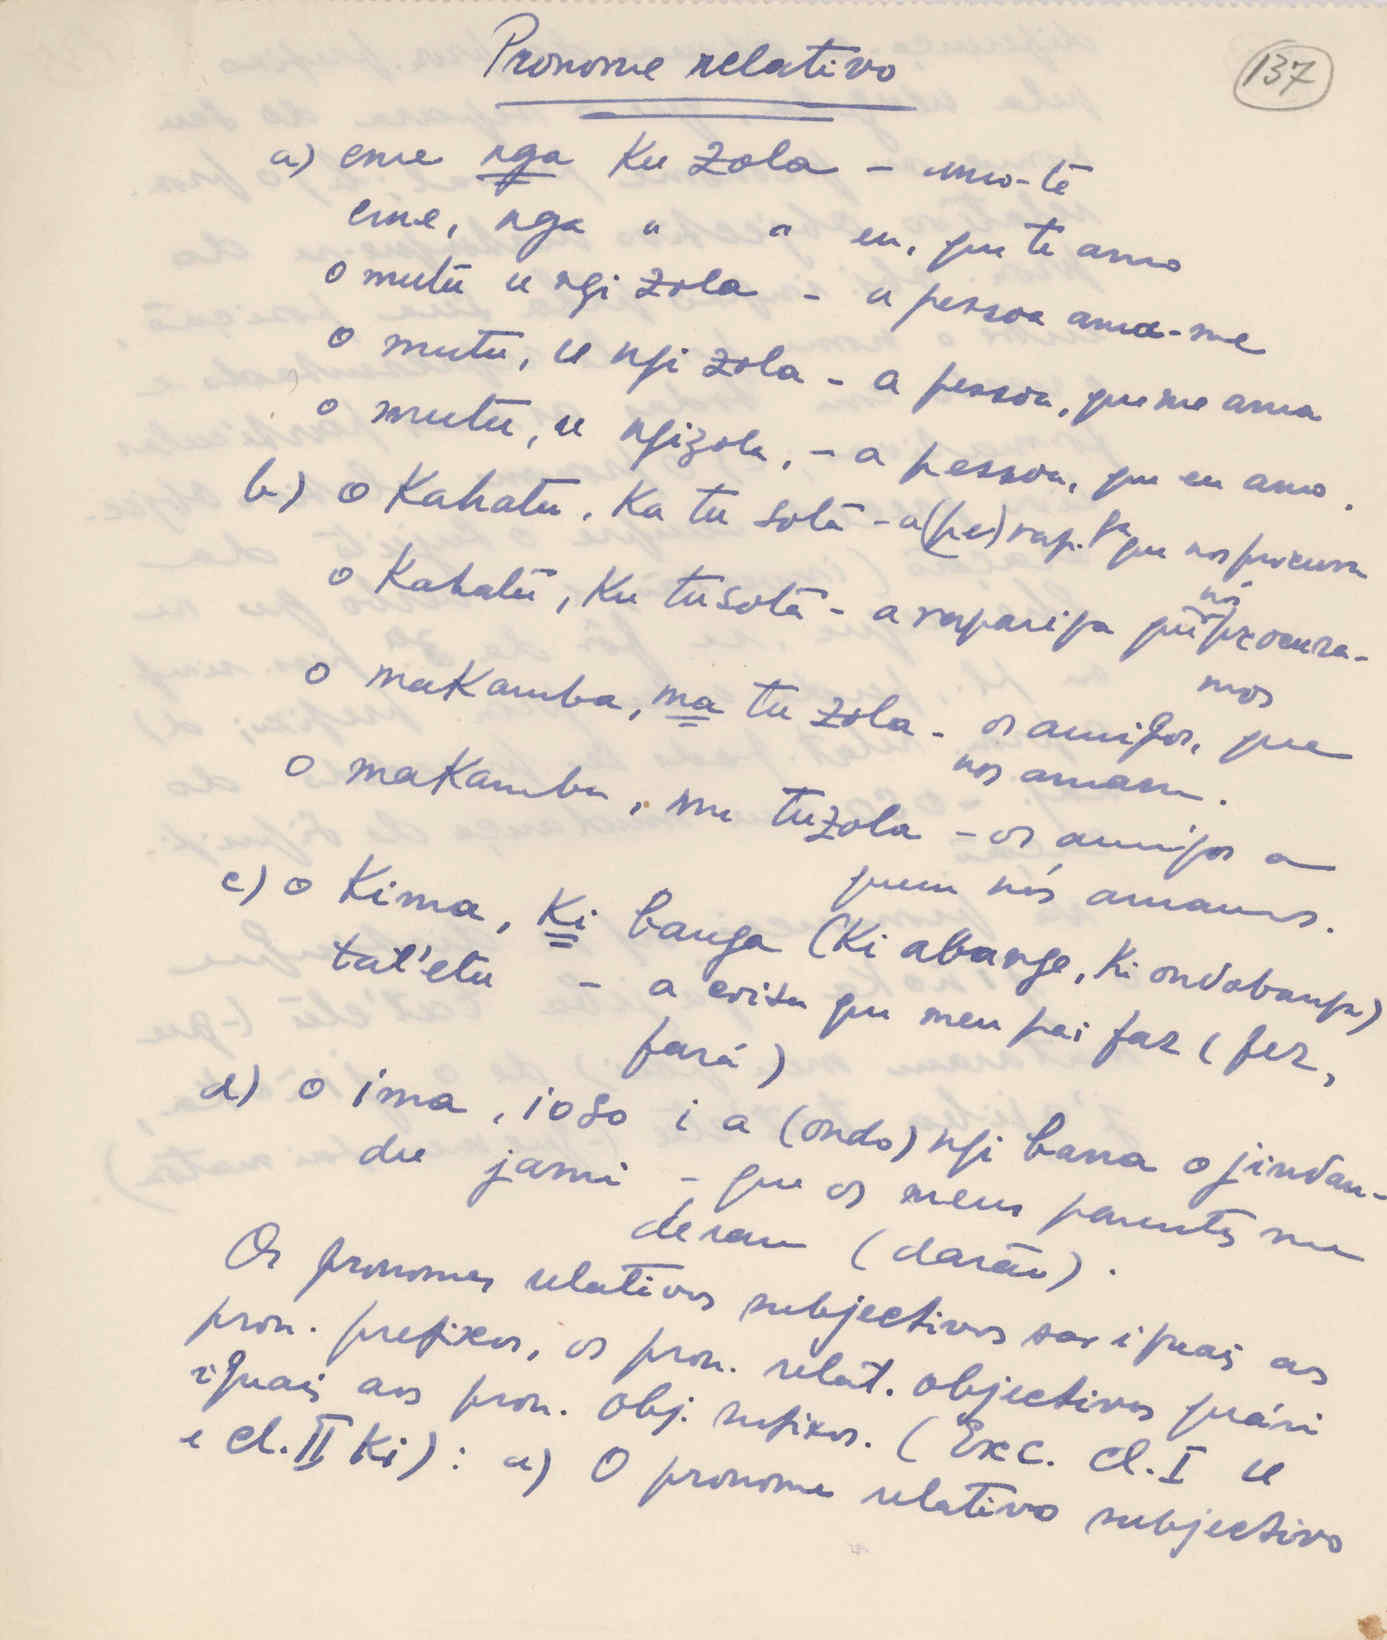 Pronome relativo
137
a) eme nga ku zola - amo-te
eme, nga " " eu, que te amo
o mutu u ngi zola - a pessoa ama-me
o mutu, u ngi zola - a pessoa, que me ama
o mutu, u ngizola, - a pessoa, que eu amo.
b) o Kahatu, Ka tu sotā - a (pe) rap. ga que nos procura
o Kahatū, Ku tusotā - a rapariga que nós procura-
mos
o maKamba, ma tu zola - os amigos, que
nos amam.
o maKamba, mu tuzola - os amigos a
quem nós amamos.
c) o Kima, Ki banga (Ki abange, Ki ondobanga)
tat'etu - a coisa que meu pai faz (fez,
fará)
d) o ima, ioso i a (ondo) ngi bana o jindan-
du jami - que os meus parentes me
deram (darão).
Os pronomes relativos subjectivos sao iguais aos
pron. prefixos, os pron. relat. objectivos quási
iguais aos pron. obj. sufixos. (Exc. cl. I u
e cl. II Ki): a) O pronome relativo subjectivo